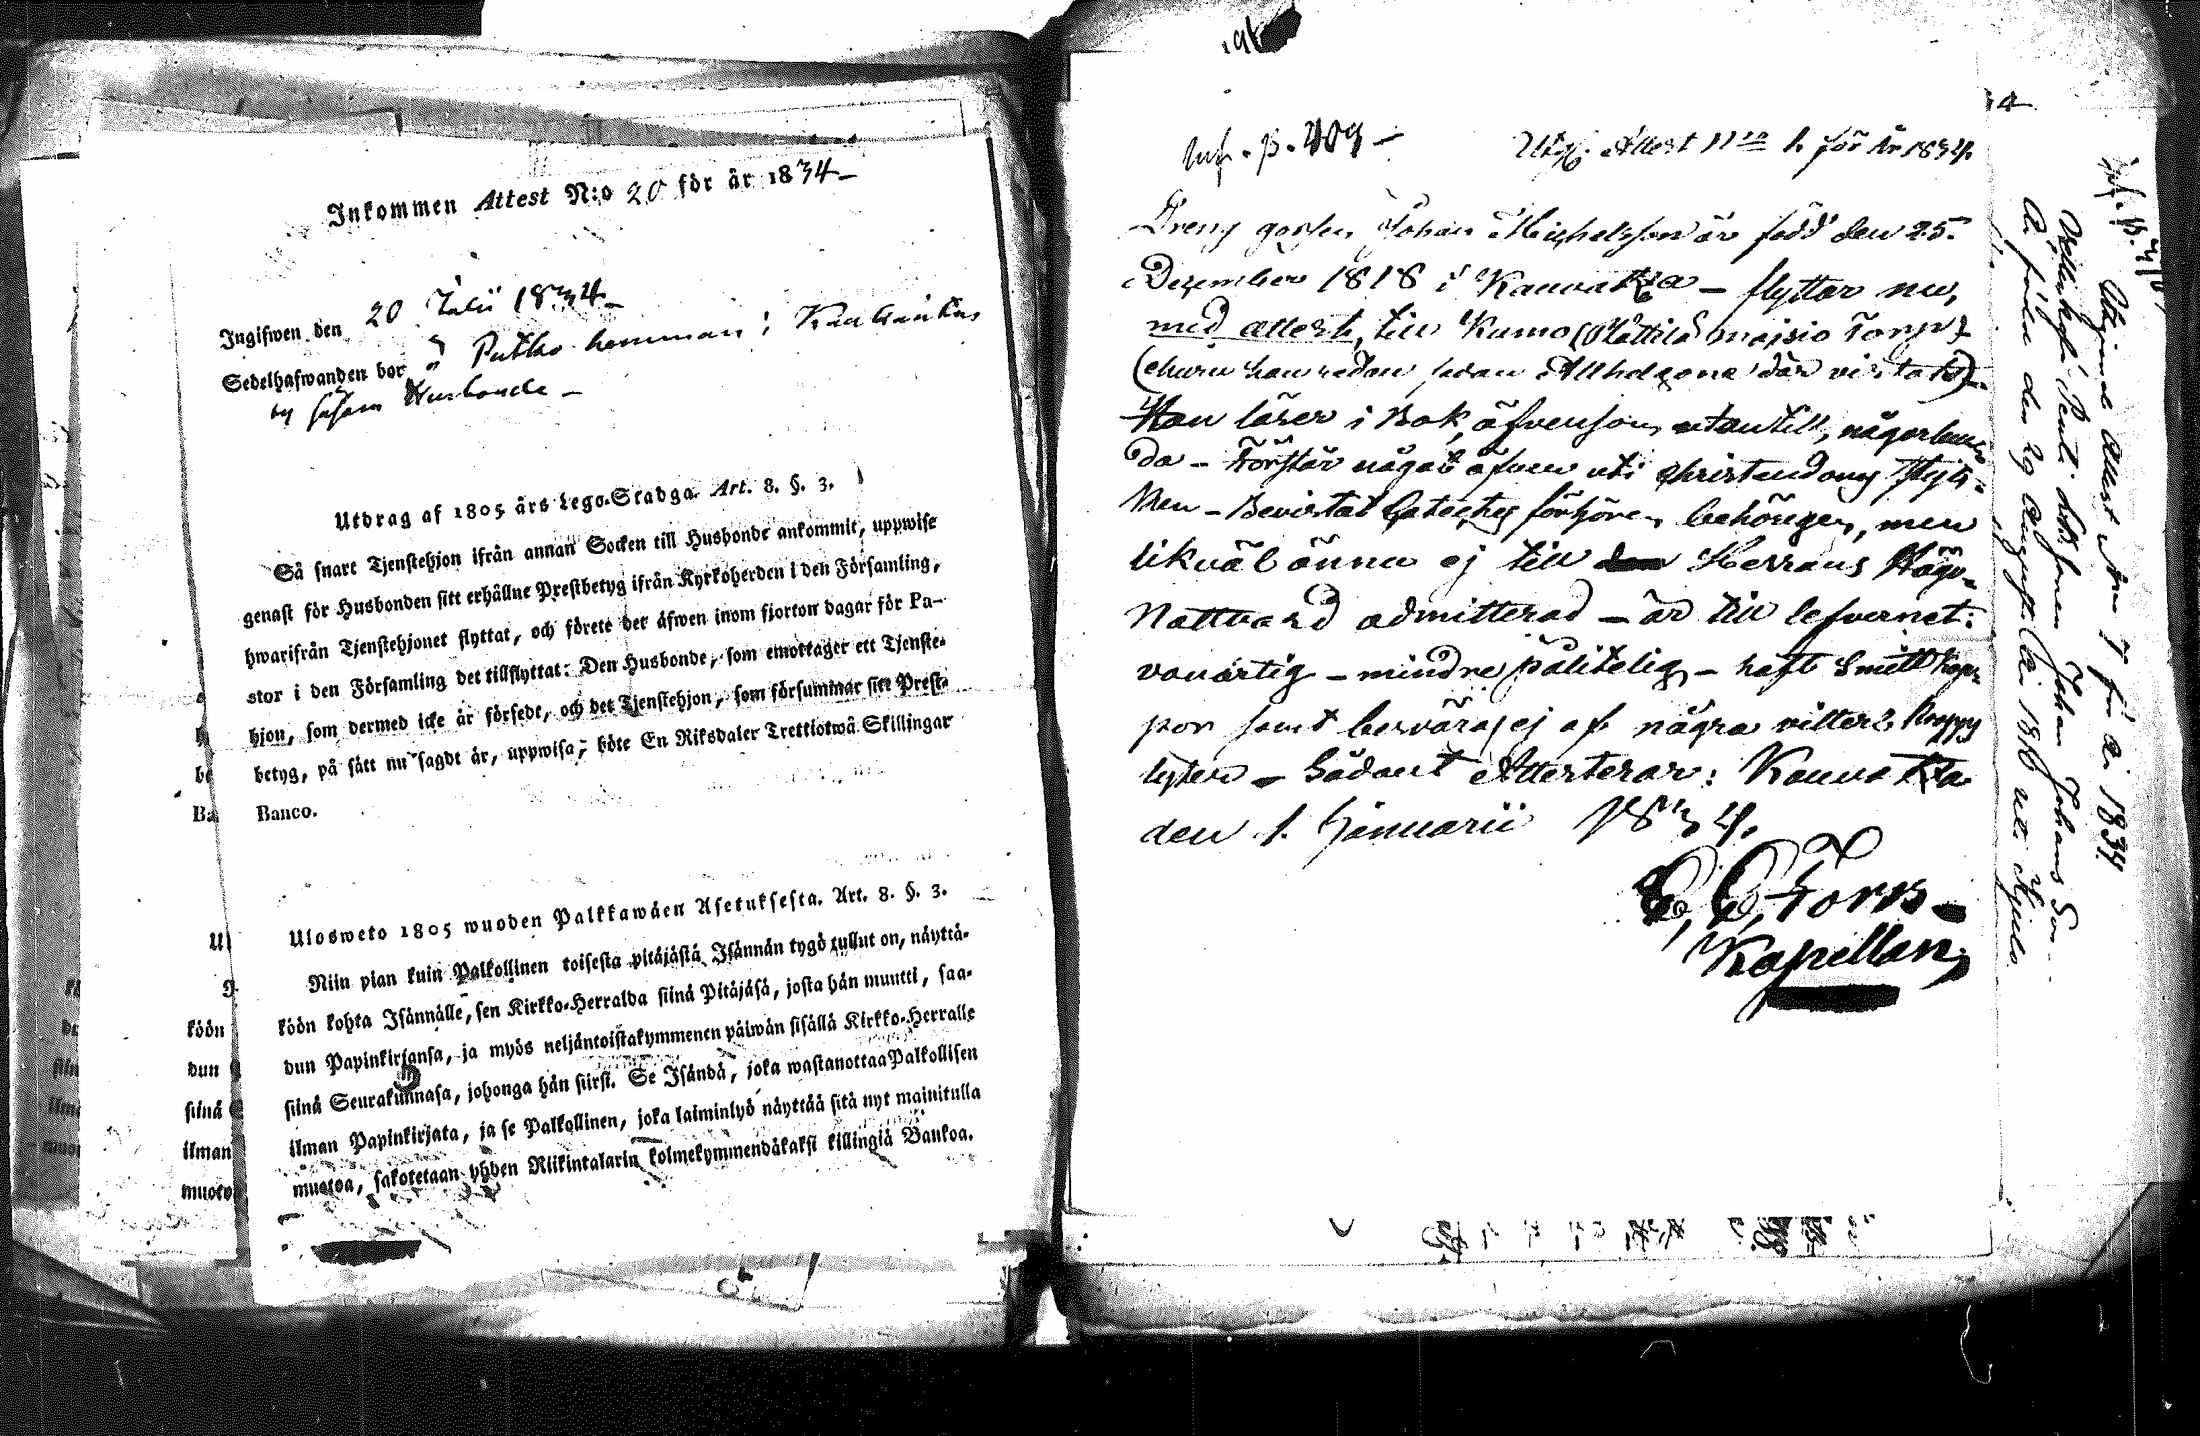 Inkommen Attest N:o 20 för år 1834 –
Ingifwen den 20 Julii 1834 –
Sedelhafwanden bor å Puttko hemman i
by såsom Husbonde –
Utdrag af 1805 års Lego-Stadga. Art. 8. §. 3.
Så snart Tjenstehjon ifrån annan Socken till Husbonde ankommit, uppwise
genast för Husbonden sitt erhållne Prestbetyg ifrån Kyrkoherden i den Församling,
hwarifrån Tjenstehjonet flyttat, och förete det äfwen inom fjorton dagar för Pa-
stor i den Församling det tillflyttat: Den Husbonde, som emottager ett Tjenste-
hjon, som dermed icke är försedt, och det Tjenstehjon, som försummar sitt Prest-
betyg, på sätt nu sagdt är, uppwisa, böte En Riksdaler Trettiotwå Skillingar
Banco.
Ulosweto 1805 wuoden Palkkawäen Asetuksesta. Art. 8. §. 3.
Niin pian kuin Palkollinen toisesta pitäjästä Isännän tygö tullut on, näyttä-
köön kohta Isännälle, sen Kirkko-Herralda siinä Pitäjäsä, josta hän muutti, saa-
dun Papinkirjansa, ja myös neljäntoistakymmenen päiwän sisällä Kirkko-Herralle
siinä Seurakunnasa, johonga hän siirsi. Se Isändä, joka wastanottaa Palkollisen
ilman Papinkirjata, ja se Palkollinen, joka laiminlyö näyttää sitä nyt mainitulla
muotoa, sakotetaan yhden Riikintalarin kolmekymmendäkaksi killingiä Bankoa.
be
Ba
köön
dun
siinä
ilman
muoto
inf. p. 409 –
Utg. Attest Nro 1. för År 1834.
Dreng gossen Johan Michelsson är född den 25.
Dezember 1818 i Kauvatza – flyttar nu,
med attest, till Kumo (Mattila Torp)
(churu han redan sedan Allhelgona där vistats).
Han läser i Bok, äfvensom utantill, någorlun-
da – Förstår något äfven uti Christendoms styc-
ken – Bevistat förhören behörigen, men
likväl ännu ej till Herrans Höga-
Nattvard admitterad – är till lefvernet:
vanartig – mindre pålitelig – haft Smitt kop-
por samt besväras ej af några vitter: kropps
lyten – Sådant Attesterar: Kauvatza
den 1. Januarii 1834.
C. C. Forss –
Kapellan,
4
Utgående Attest N:o 7 för år 1834
Johan Johans Son
Är född den 29 Augusti år 1816 uti Kjulo.